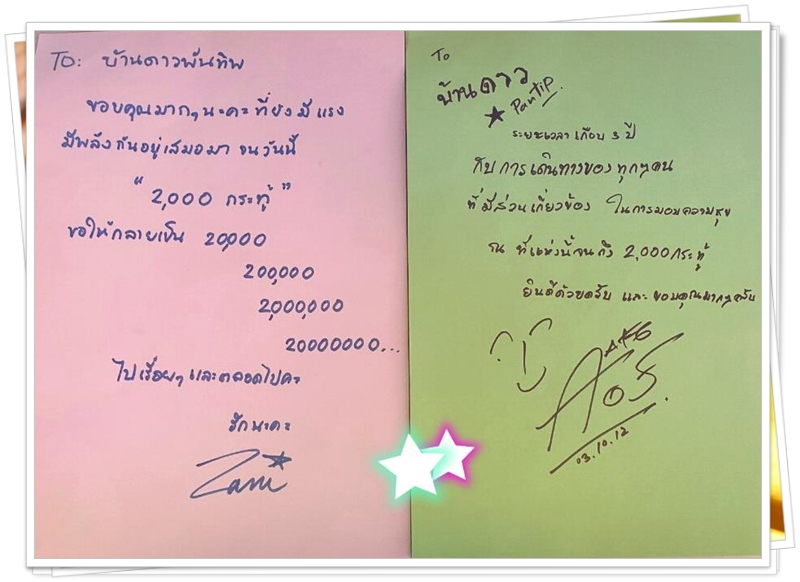 TO: บ้านดาวพันทิพ
ขอบคุณมากๆนะคะที่ยังมีแรง
มีพลังกันอยู่เสมอมา จนวันนี้
"2,000 กระทู้"
ขอให้กลายเป็น 20,000
200,000
2,000,000
20000000...
ไปเรื่อยๆ และตลอดไปคะ
รักนะคะ
To
บ้านดาว
Pantip.
ระยะเวลา เกือบ 3 ปี
กับการเดินทางของทุกๆคน
ที่มีส่วนเกี่ยวข้อง ในการมอบความสุข
ณ ที่แห่งนี้จนถึง 2,000กระทู้
ยินดีด้วยครับ และ ขอบคุณมากๆครับ
AF6
03.10.12